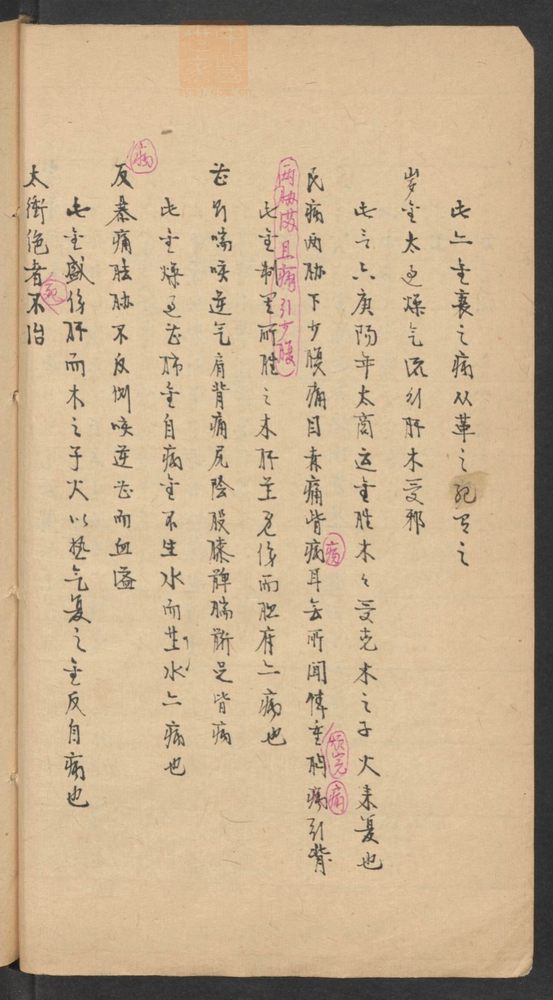 此亡金衰之病从革之纪是之
岁金太过燥气流引肝木受邪
此言六庚阳年太商运金胜木々受克木之子火来复也
民病两胁下少腹痛目赤痛眥病耳无所闻体重胸痛引背
疡
烦冤
痛
两胁满且痛引少腹
此金制其所胜之木肝並危伤而胆府亡病也
甚则喘咳逆气肩背痛尻阴股膝髀腨䯒足皆病
此金燥过甚肺金自病金不生水而甘水亡病也
反暴痛胠胁不反侧咳逆甚而血溢
病
此金盛伤肝而木之子火以热气复之金反自病也
太衝绝者不治
死